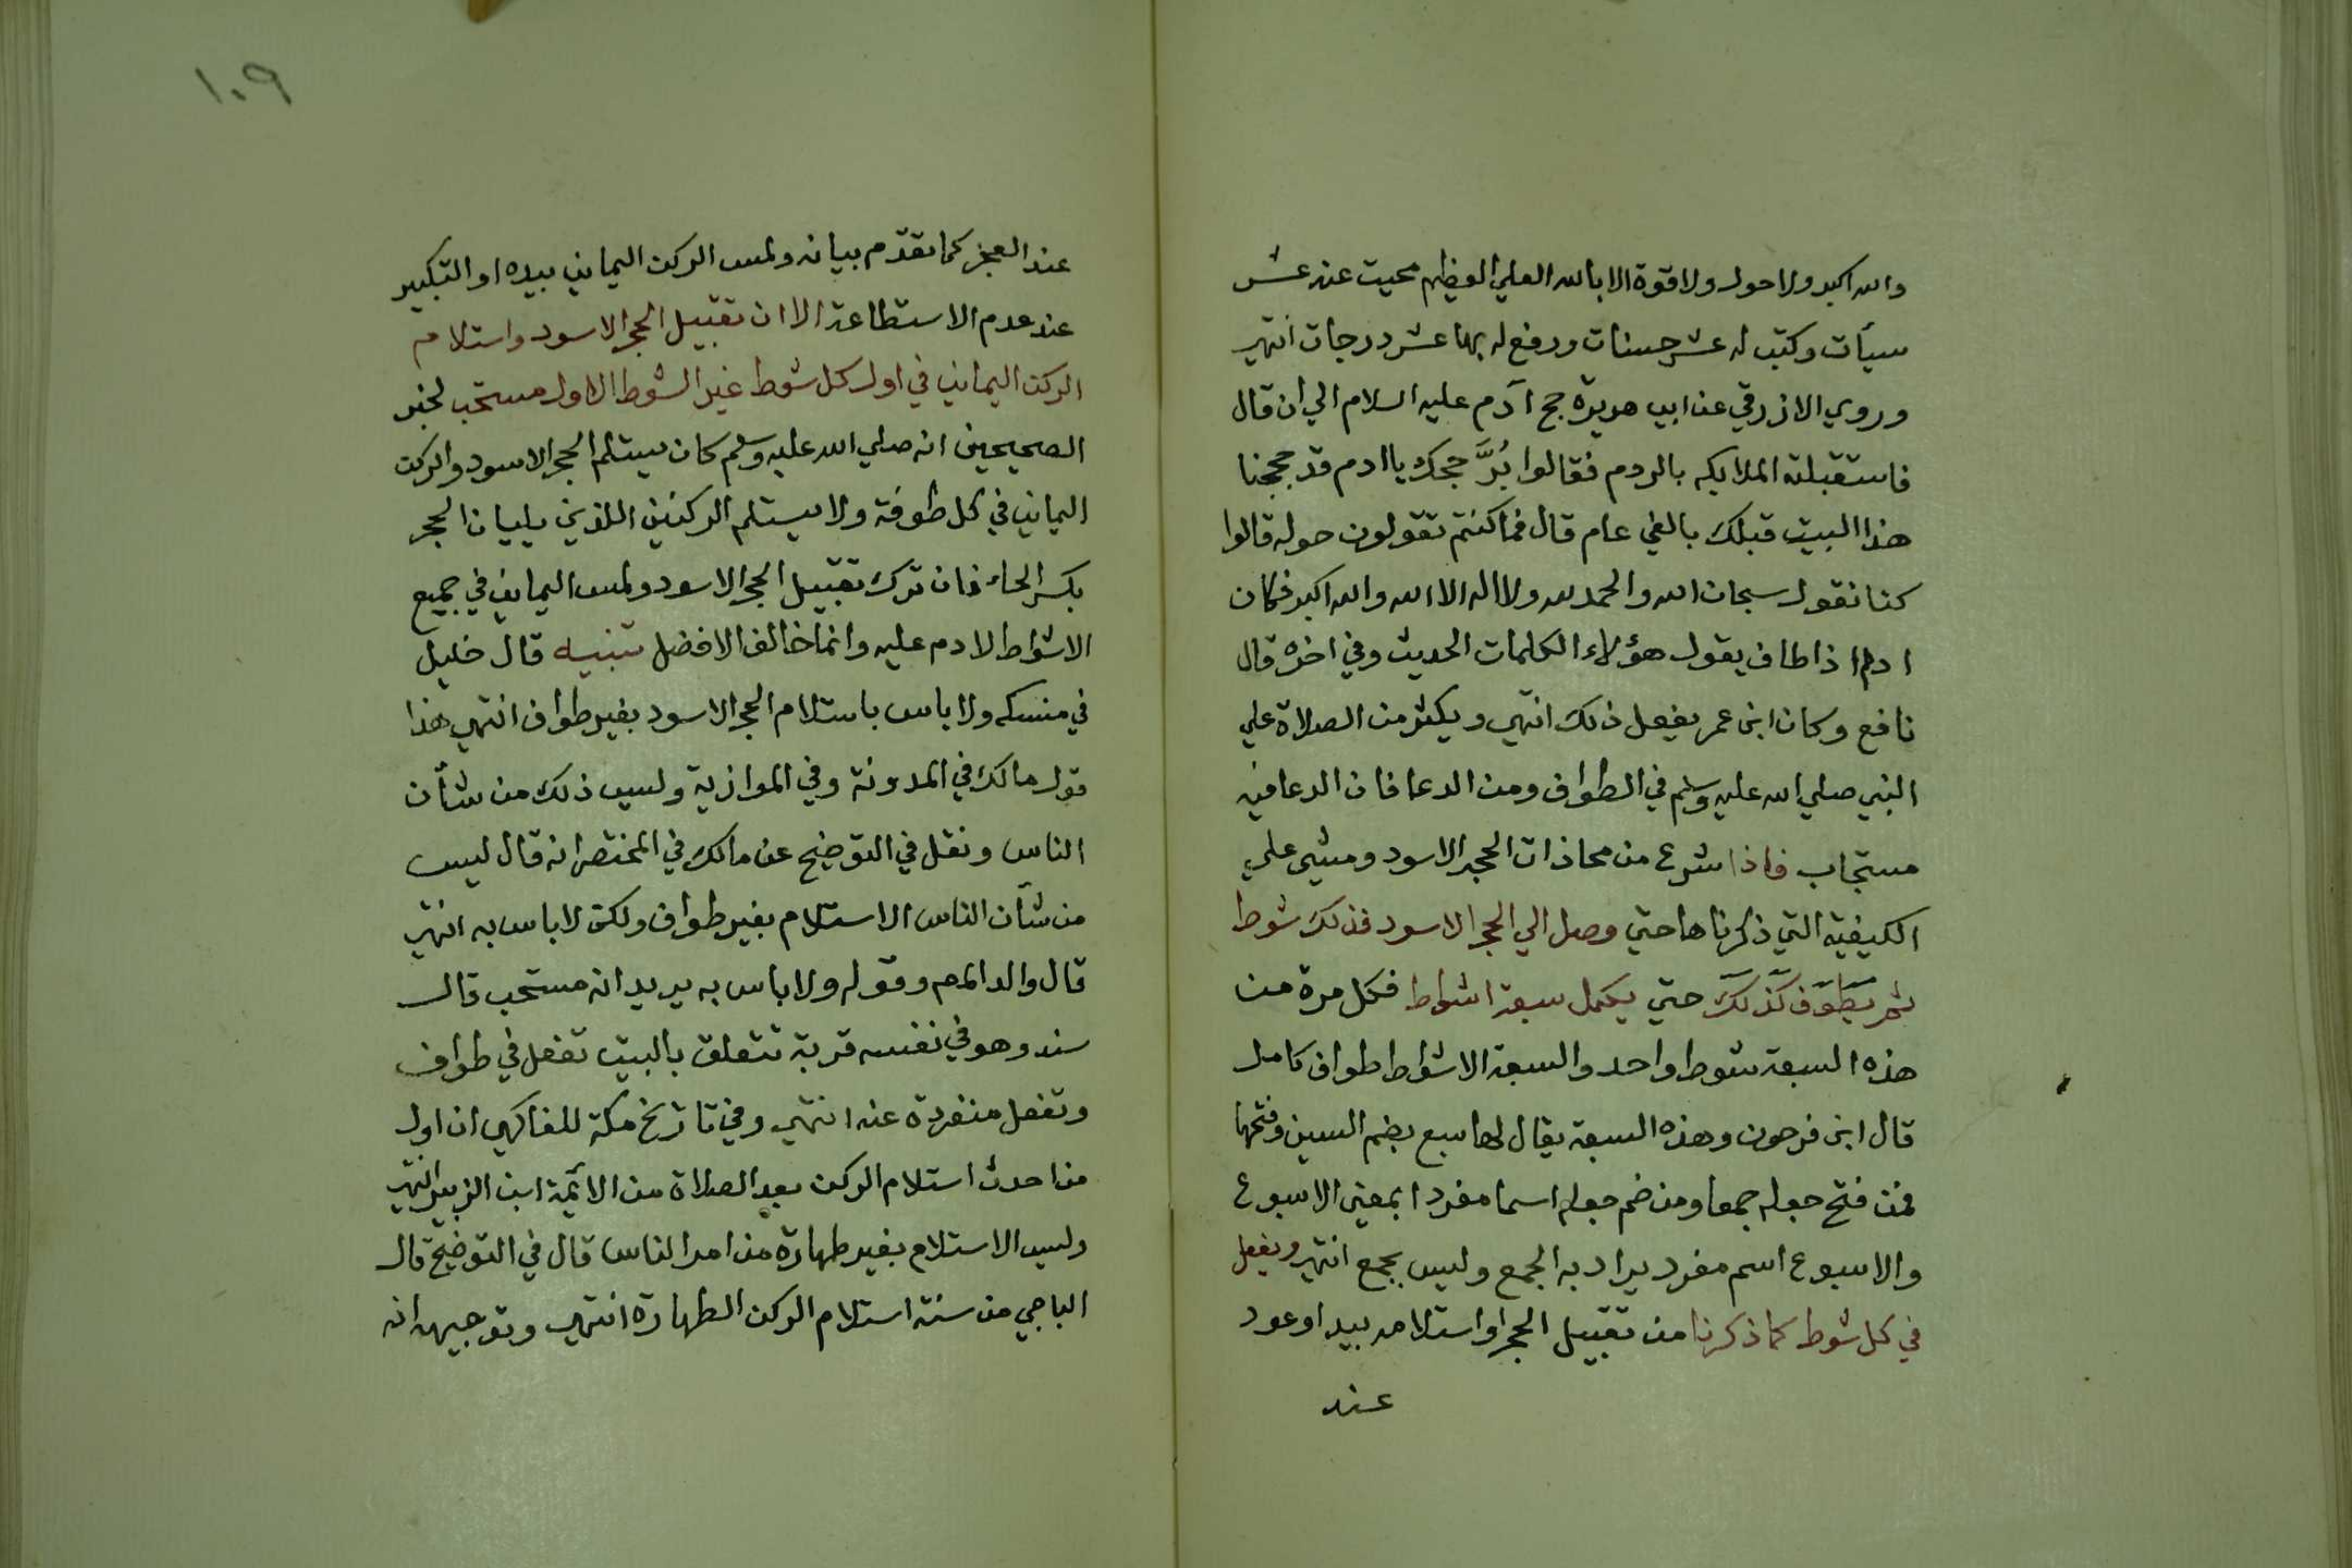 والله اكبر ولا حول ولا قوة الا بالله العلي العظيم محيت عنه عشر
سيأت وكتب له عشر حسنات ورفع له بها عشر درجات انتهي
وروي الازرقي عن ابي هريرة حج آدم عليه السلام الي ان قال
فاستقبلته الملايكه بالردم فقالوا بُرَّ حجك يا ادم قد حججنا
هذا البيت قبلك بالفي عام قال فما كنتم تقولون حوله قالوا
كنا نقول سبحان الله والحمد لله ولا اله الا الله والله اكبر فكان
ادم اذا طاف يقول هؤلاء الكلمات الحديث وفي اخره قال
نافع وكان ابن عمر يفعل ذلك انتهي ويكثر من الصلاة علي
النبي صلي الله عليه وسلم في الطواف ومن الدعا فان الدعا فيه
مستجاب فاذا شرع من محاذات الحجر الاسود ومشي علي
الكيفية التي ذكرناها حتي وصل الي الحجر الاسود فذلك شوط
ثم يطوف كذلك حتي يكمل سبعة اشواط فكل مرة من
هذه السبعة شوط واحد والسبعة الاشواط طواف كامل
قال ابن فرحون وهذه السبعة يقال لها سبع بضم السين وفتحها
فمن فتح جعله جمعا ومن ضم جعله اسما مفردا بمعني الاسبوع
والاسبوع اسم مفرد يراد به الجمع وليس بجمع انتهي ويفعل
في كل شوط كما ذكرنا من تقبيل الحجر او استلامه بيد او عود
عند
١٠٩
عند العجز كما تقدم بيانه ولمس الركن اليماني بيده او التكبير
عند عدم الاستطاعة الا ان تقبيل الحجر الاسود واستلام
الركن اليماني في اول كل شوط غير الشوط الاول مستحب لخبر
الصحيحين انه صلي الله عليه وسلم كان يستلم الحجر الاسود والركن
اليماني في كل طوفة ولا يستلم الركنين اللذين يليان الحجر
بكسر الحاء فان ترك تقبيل الحجر الاسود ولمس اليماني في جميع
الاشواط لا دم عليه وانما خالف الافضل تنبيه قال خليل
في منسكه ولا باس باستلام الحجر الاسود بغير طواف انتهي هذا
قول مالك في المدونة وفي الموازية وليس ذلك من شأن
الناس ونقل في التوضيح عن مالك في المختصر انه قال ليس
من شأن الناس الاستلام بغير طواف ولكن لا باس به انتهي
قال والد المم وقوله ولا باس به يريد انه مستحب قال
سند وهو في نفسه قربة تتعلق بالبيت تفعل في طواف
وتفعل منفردة عنه انتهي وفي تاريخ مكة للفاكهي ان اول
من احدث استلام الركن بعد الصلاة من الأئمة ابن الزبير انتهي
وليس الاستلام بغير طهارة من امر الناس قال في التوضيح قال
الباجي من سنة استلام الركن الطهارة انتهي وتوجيهه انه